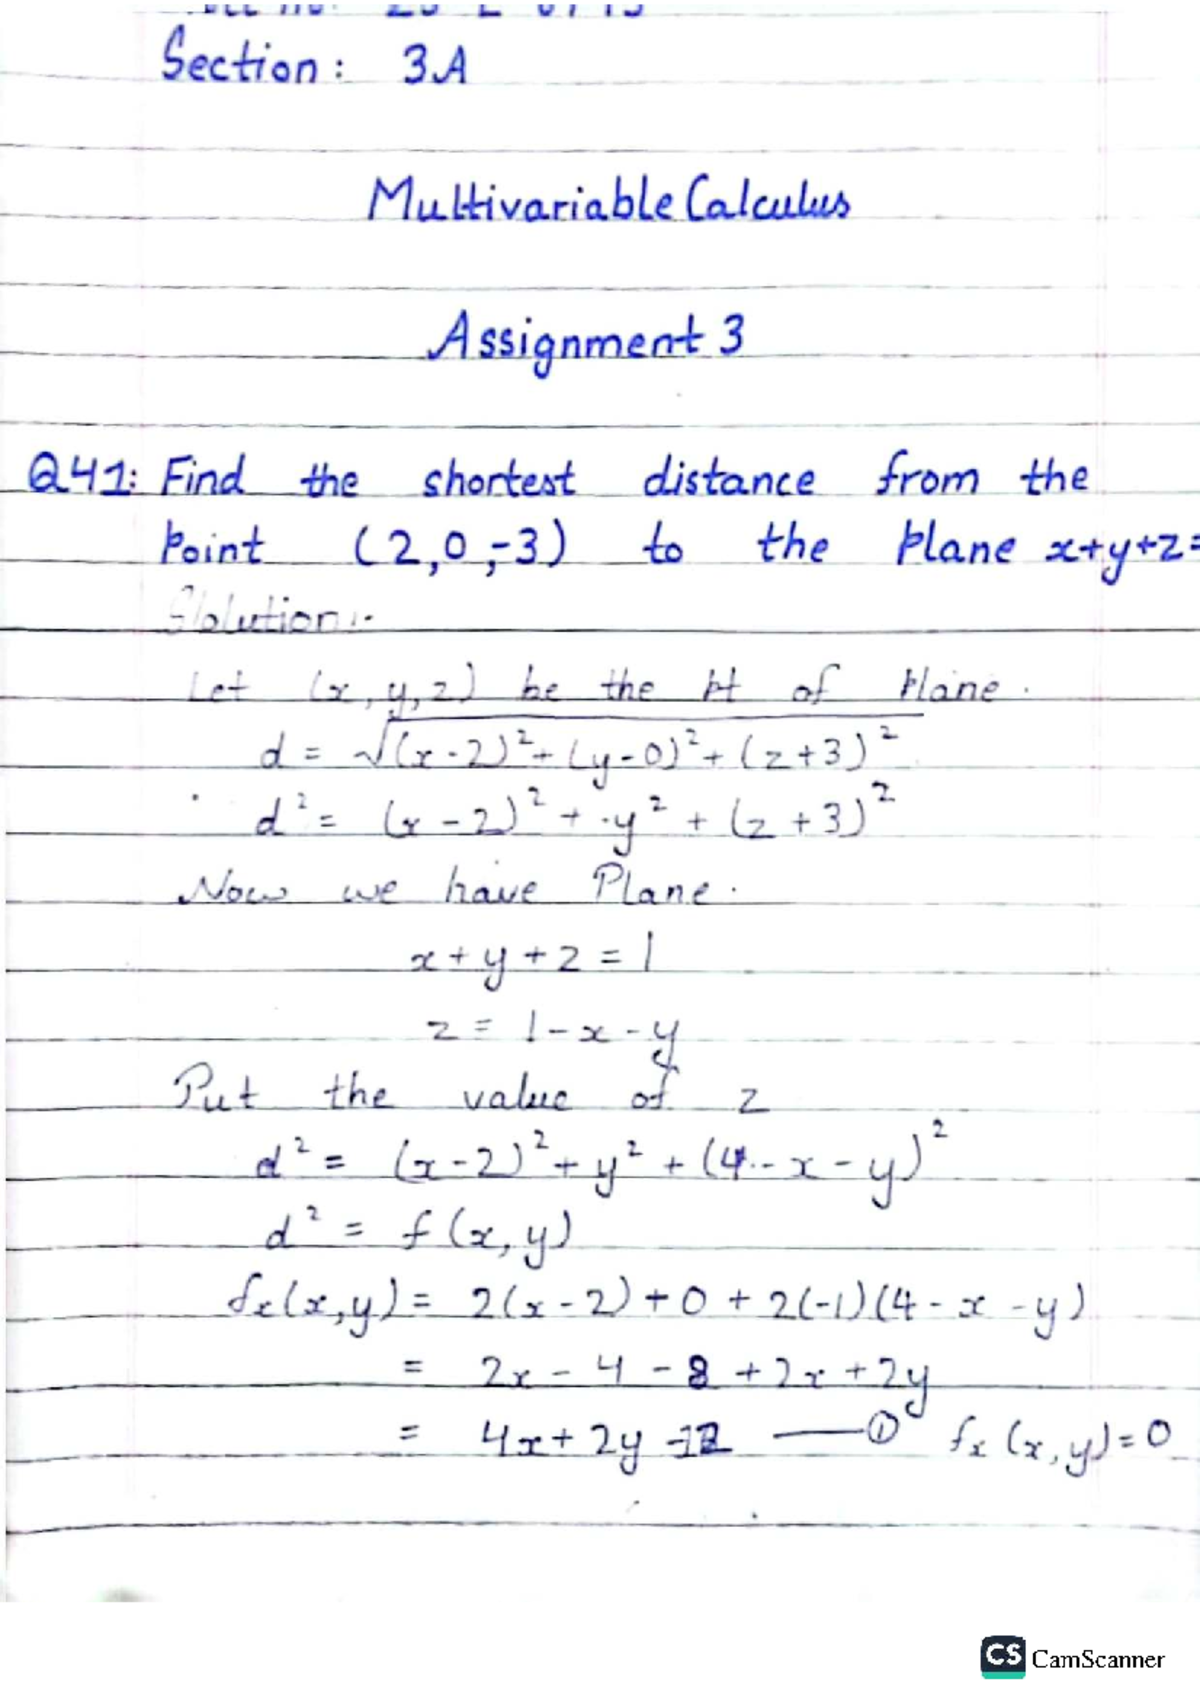 Section: 3A
Multivariable Calculus
Assignment 3
Q41: Find the shortest distance from the
Point (2,0,-3) to the Plane x+y+z=
Solution:-
Let (x,y,z) be the pt of Plane.
d = √(x-2)²+(y-0)²+(z+3)²
d² = (x-2)²+y²+(z+3)²
Now we have Plane.
x+y+z=1
z = 1-x-y
Put the value of z
d² = (x-2)²+y²+(4-x-y)²
d² = f(x,y)
fx(x,y) = 2(x-2)+0+2(-1)(4-x-y)
= 2x-4-8+2x+2y
= 4x+2y-12 —① fx(x,y)=0
CS CamScanner